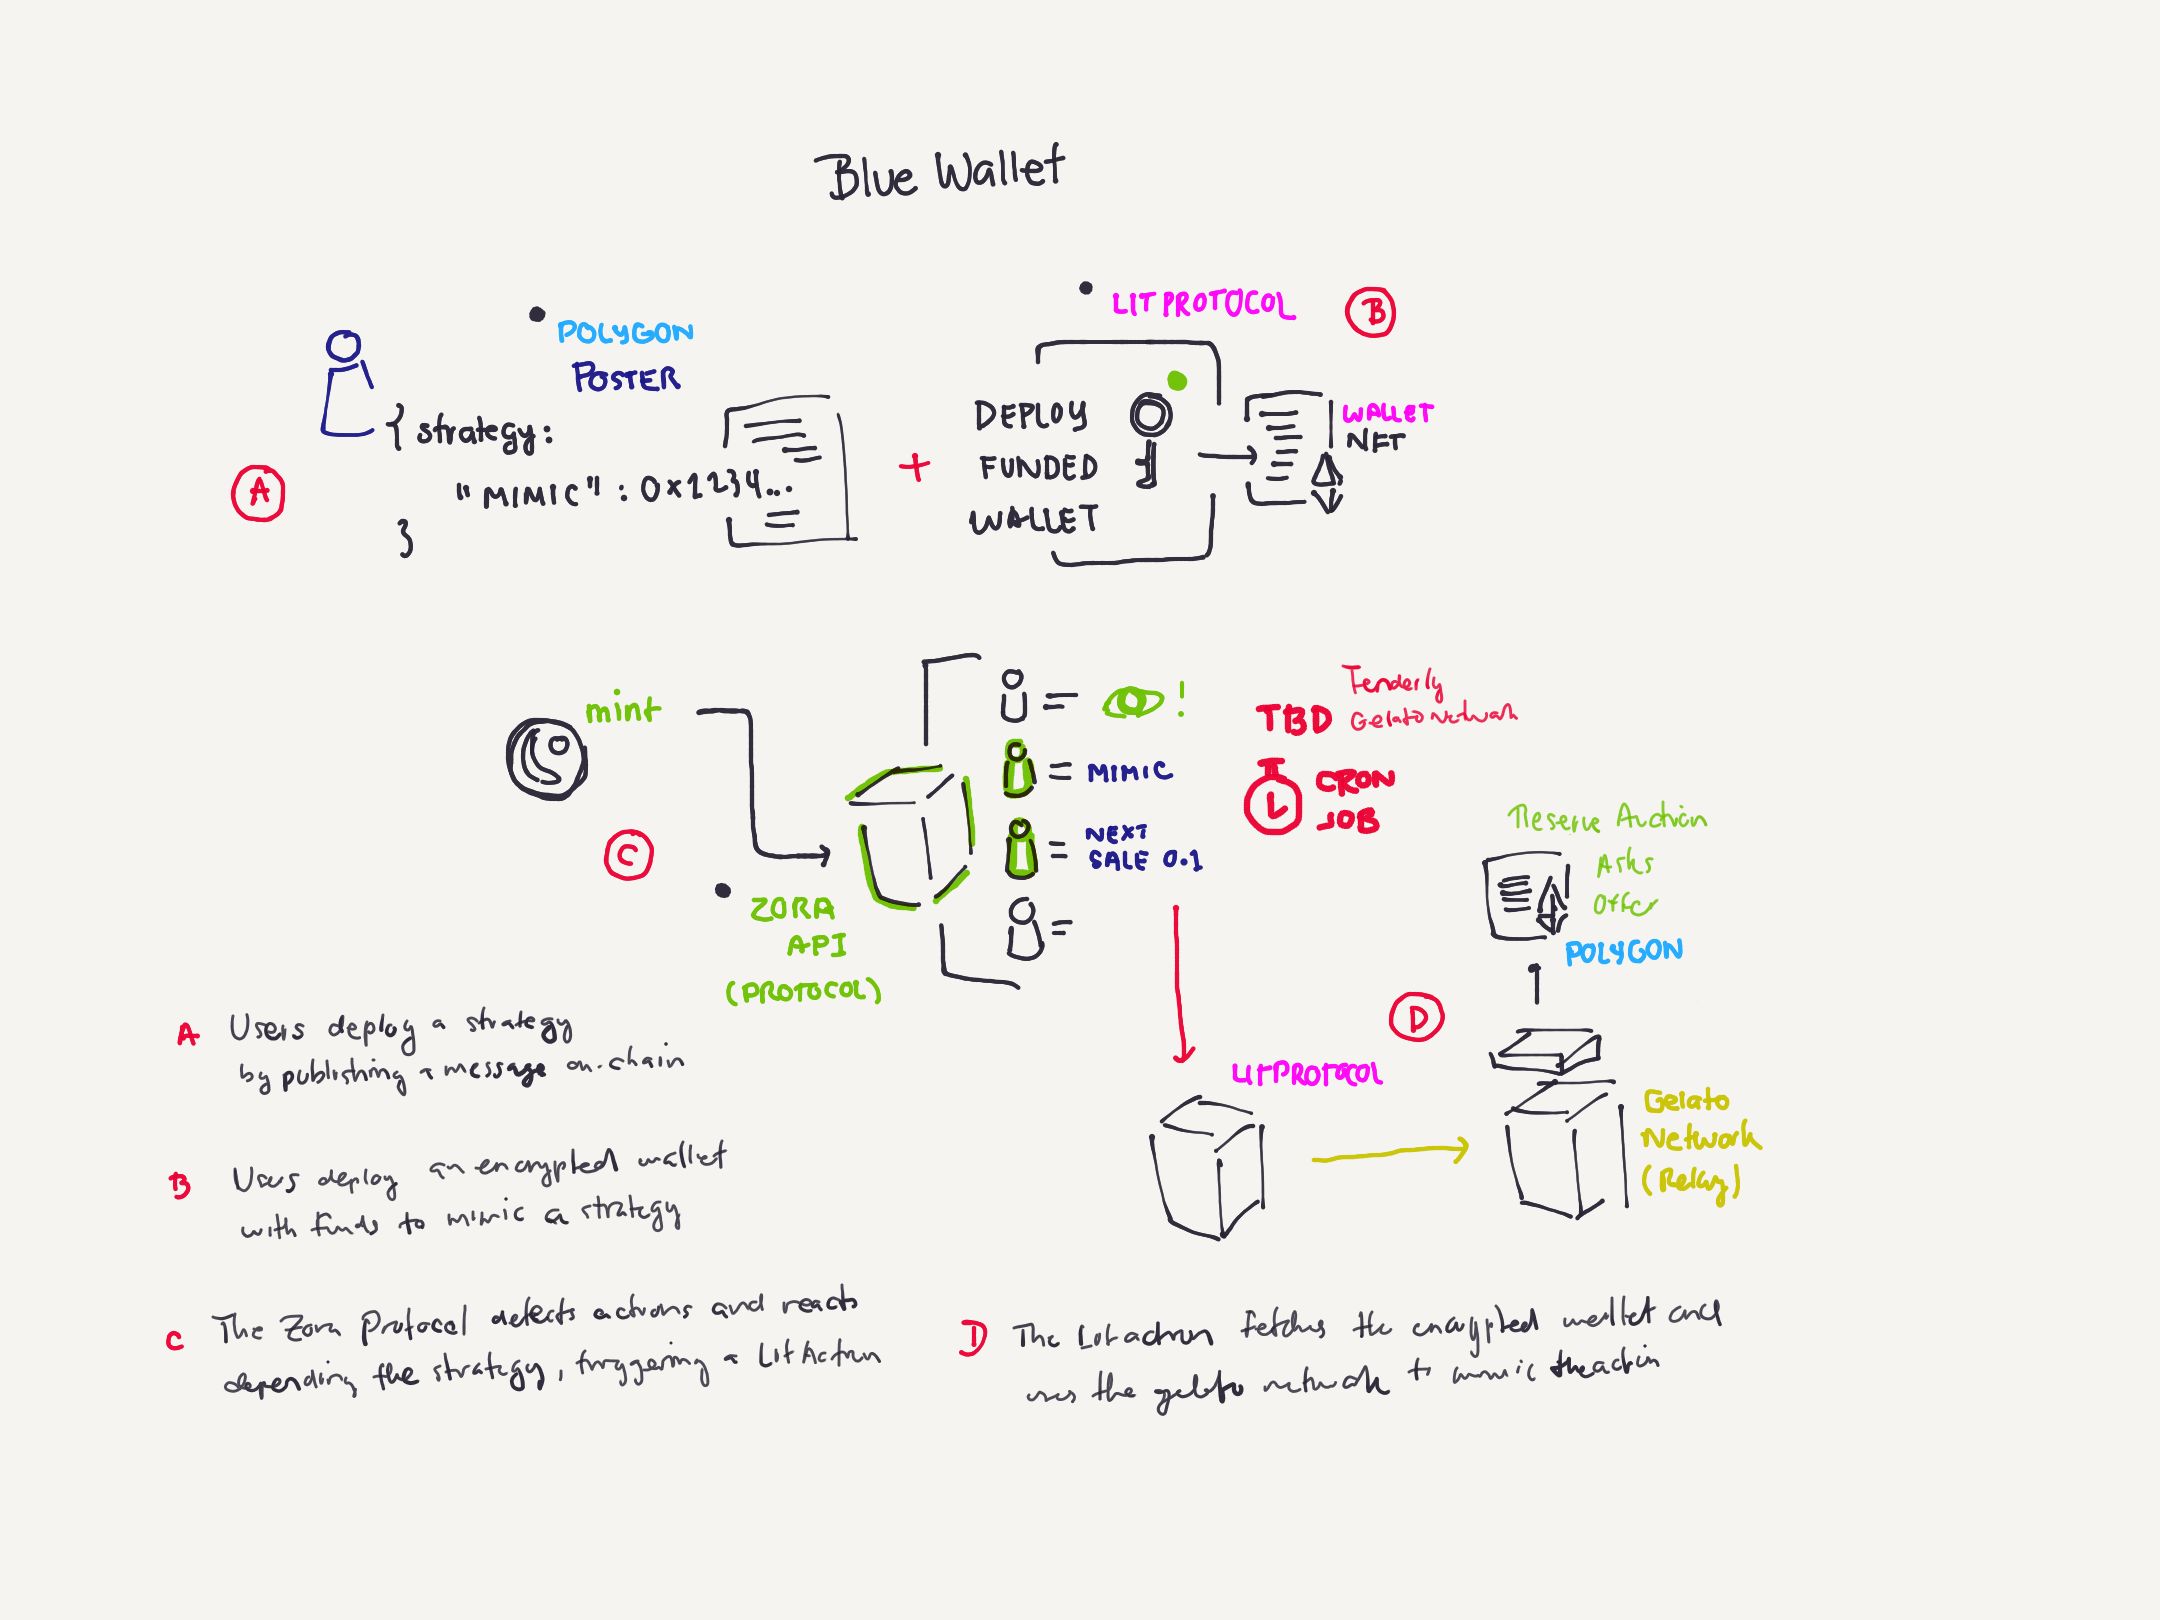 Blue Wallet
POLYGON
POSTER
A
{ strategy:
"MIMIC" : 0x1234...
}
+
LIT PROTOCOL
B
DEPLOY
FUNDED
WALLET
WALLET
NFT
mint
C
ZORA
API
(PROTOCOL)
= !
= MIMIC
= NEXT
SALE 0.1
=
TBD
Tenderly
Gelato Network
CRON
JOB
Reserve Auction
Asks
Offer
POLYGON
D
LIT PROTOCOL
Gelato
Network
(Relay)
A Users deploy a strategy
by publishing a message on-chain
B Users deploy an encrypted wallet
with funds to mimic a strategy
C The Zora Protocol detects actions and reacts
depending the strategy, triggering a Lit Action
D The Lit action fetches the encrypted wallet and
uses the gelato network to mimic the action